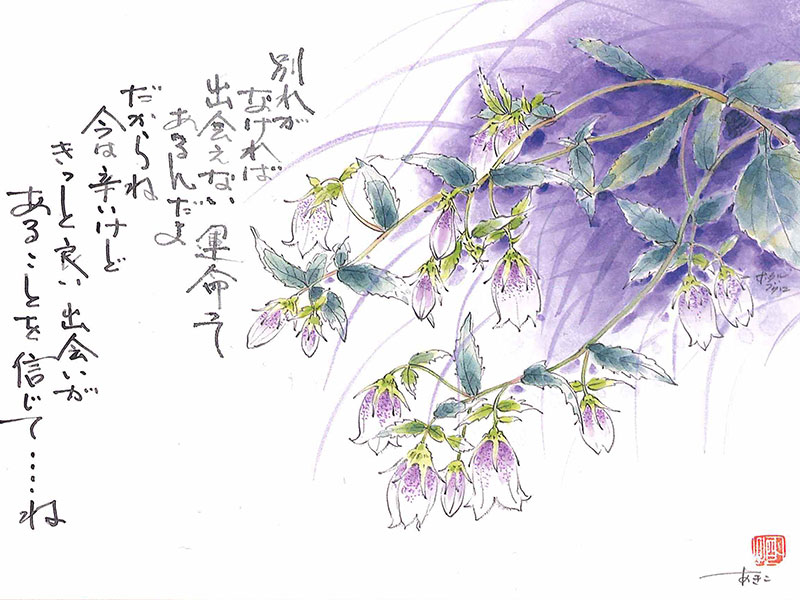 別れが
なければ
出会えない運命って
あるんだよ
だからね
今は辛いけど
きっと良い出会いが
あることを信じて……ね
ホタル
ブクロ
あきこ